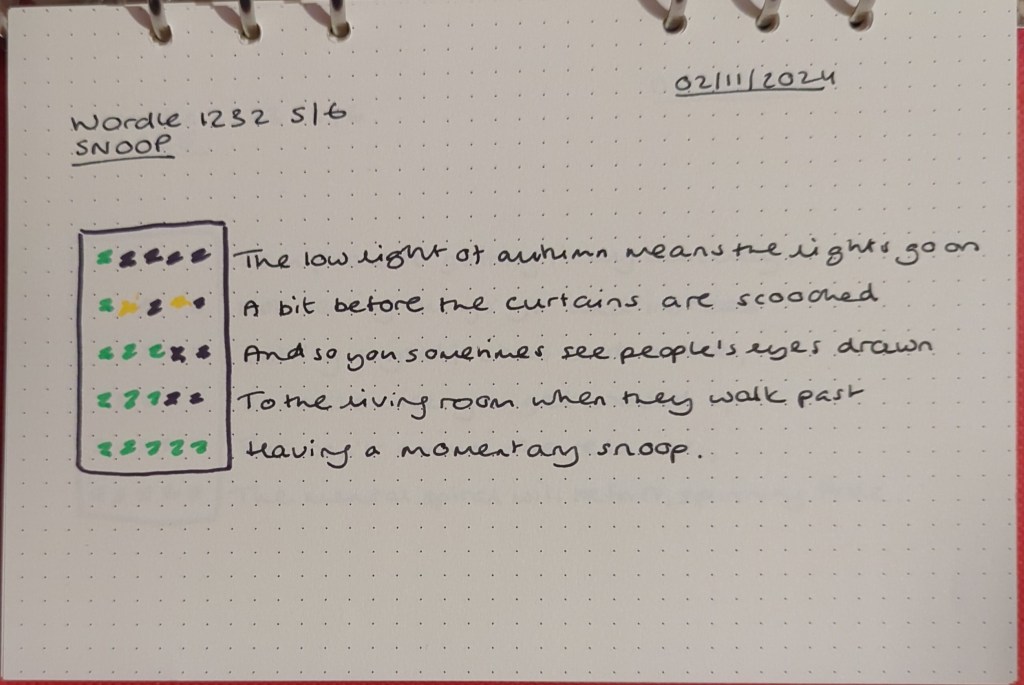 02/11/2024
Wordle 1232 5/6
SNOOP
The low light of autumn means the lights go on
A bit before the curtains are scooched
And so you sometimes see people's eyes drawn
To the living room when they walk past
Having a momentary snoop.